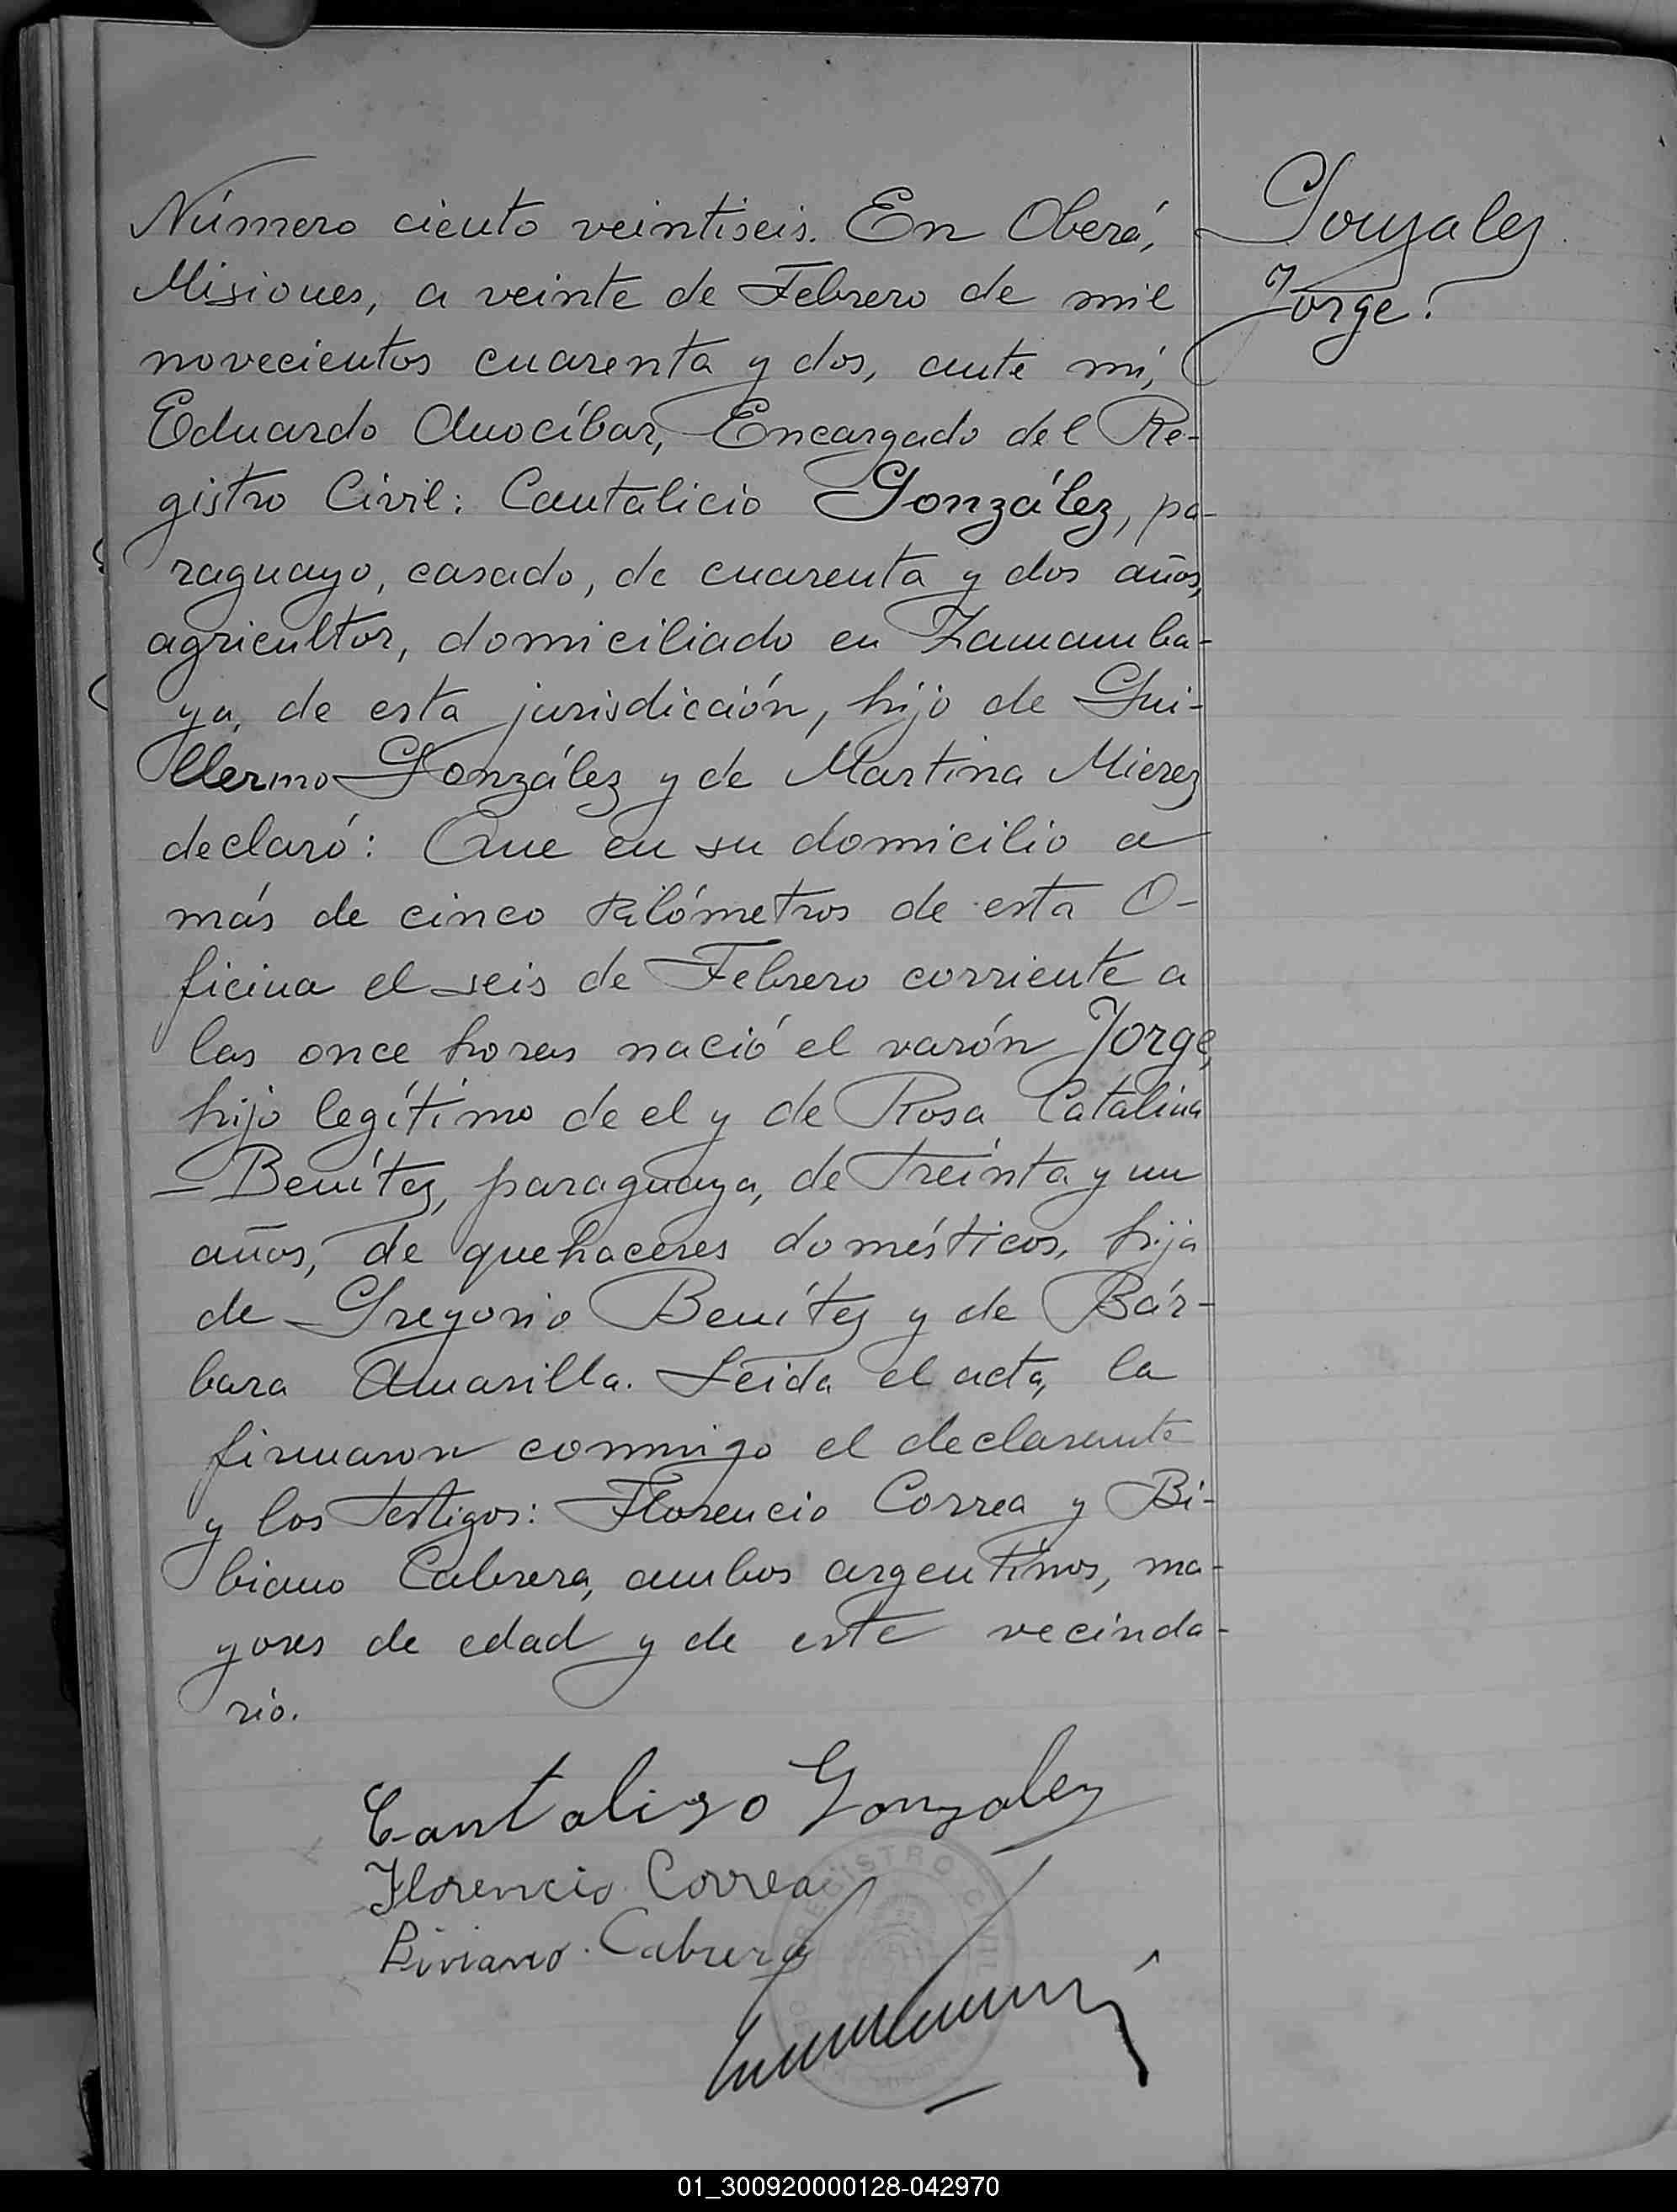 Número ciento veintiseis. En Oberá,
Misiones, a veinte de Febrero de mil
novecientos cuarenta y dos, ante mí,
Eduardo Anocíbar, Encargado del Re-
gistro Civil: Cantalicio González, pa-
raguayo, casado, de cuarenta y dos años,
agricultor, domiciliado en Zamamba-
ya, de esta jurisdicción, hijo de Gui-
llermo González y de Martina Mierez
declaró: Que en su domicilio a
más de cinco kilómetros de esta O-
ficina el seis de Febrero corriente a
las once horas nació el varón Jorge,
hijo legítimo de el y de Rosa Catalina
Benítez, paraguaya, de treinta y un
años, de quehaceres domésticos, hija
de Gregorio Benítez y de Bár-
bara Amarilla. Leida el acta, la
firmaron conmigo el declarante
y los testigos: Florencio Correa y Bi-
biano Cabrera, ambos argentinos, ma-
yores de edad y de este vecinda-
rio.
Gonzalez
Jorge.
Cantalizo Gonzalez
Florencio Correa
Biviano Cabrera
REGISTRO CIVIL
01_300920000128-042970